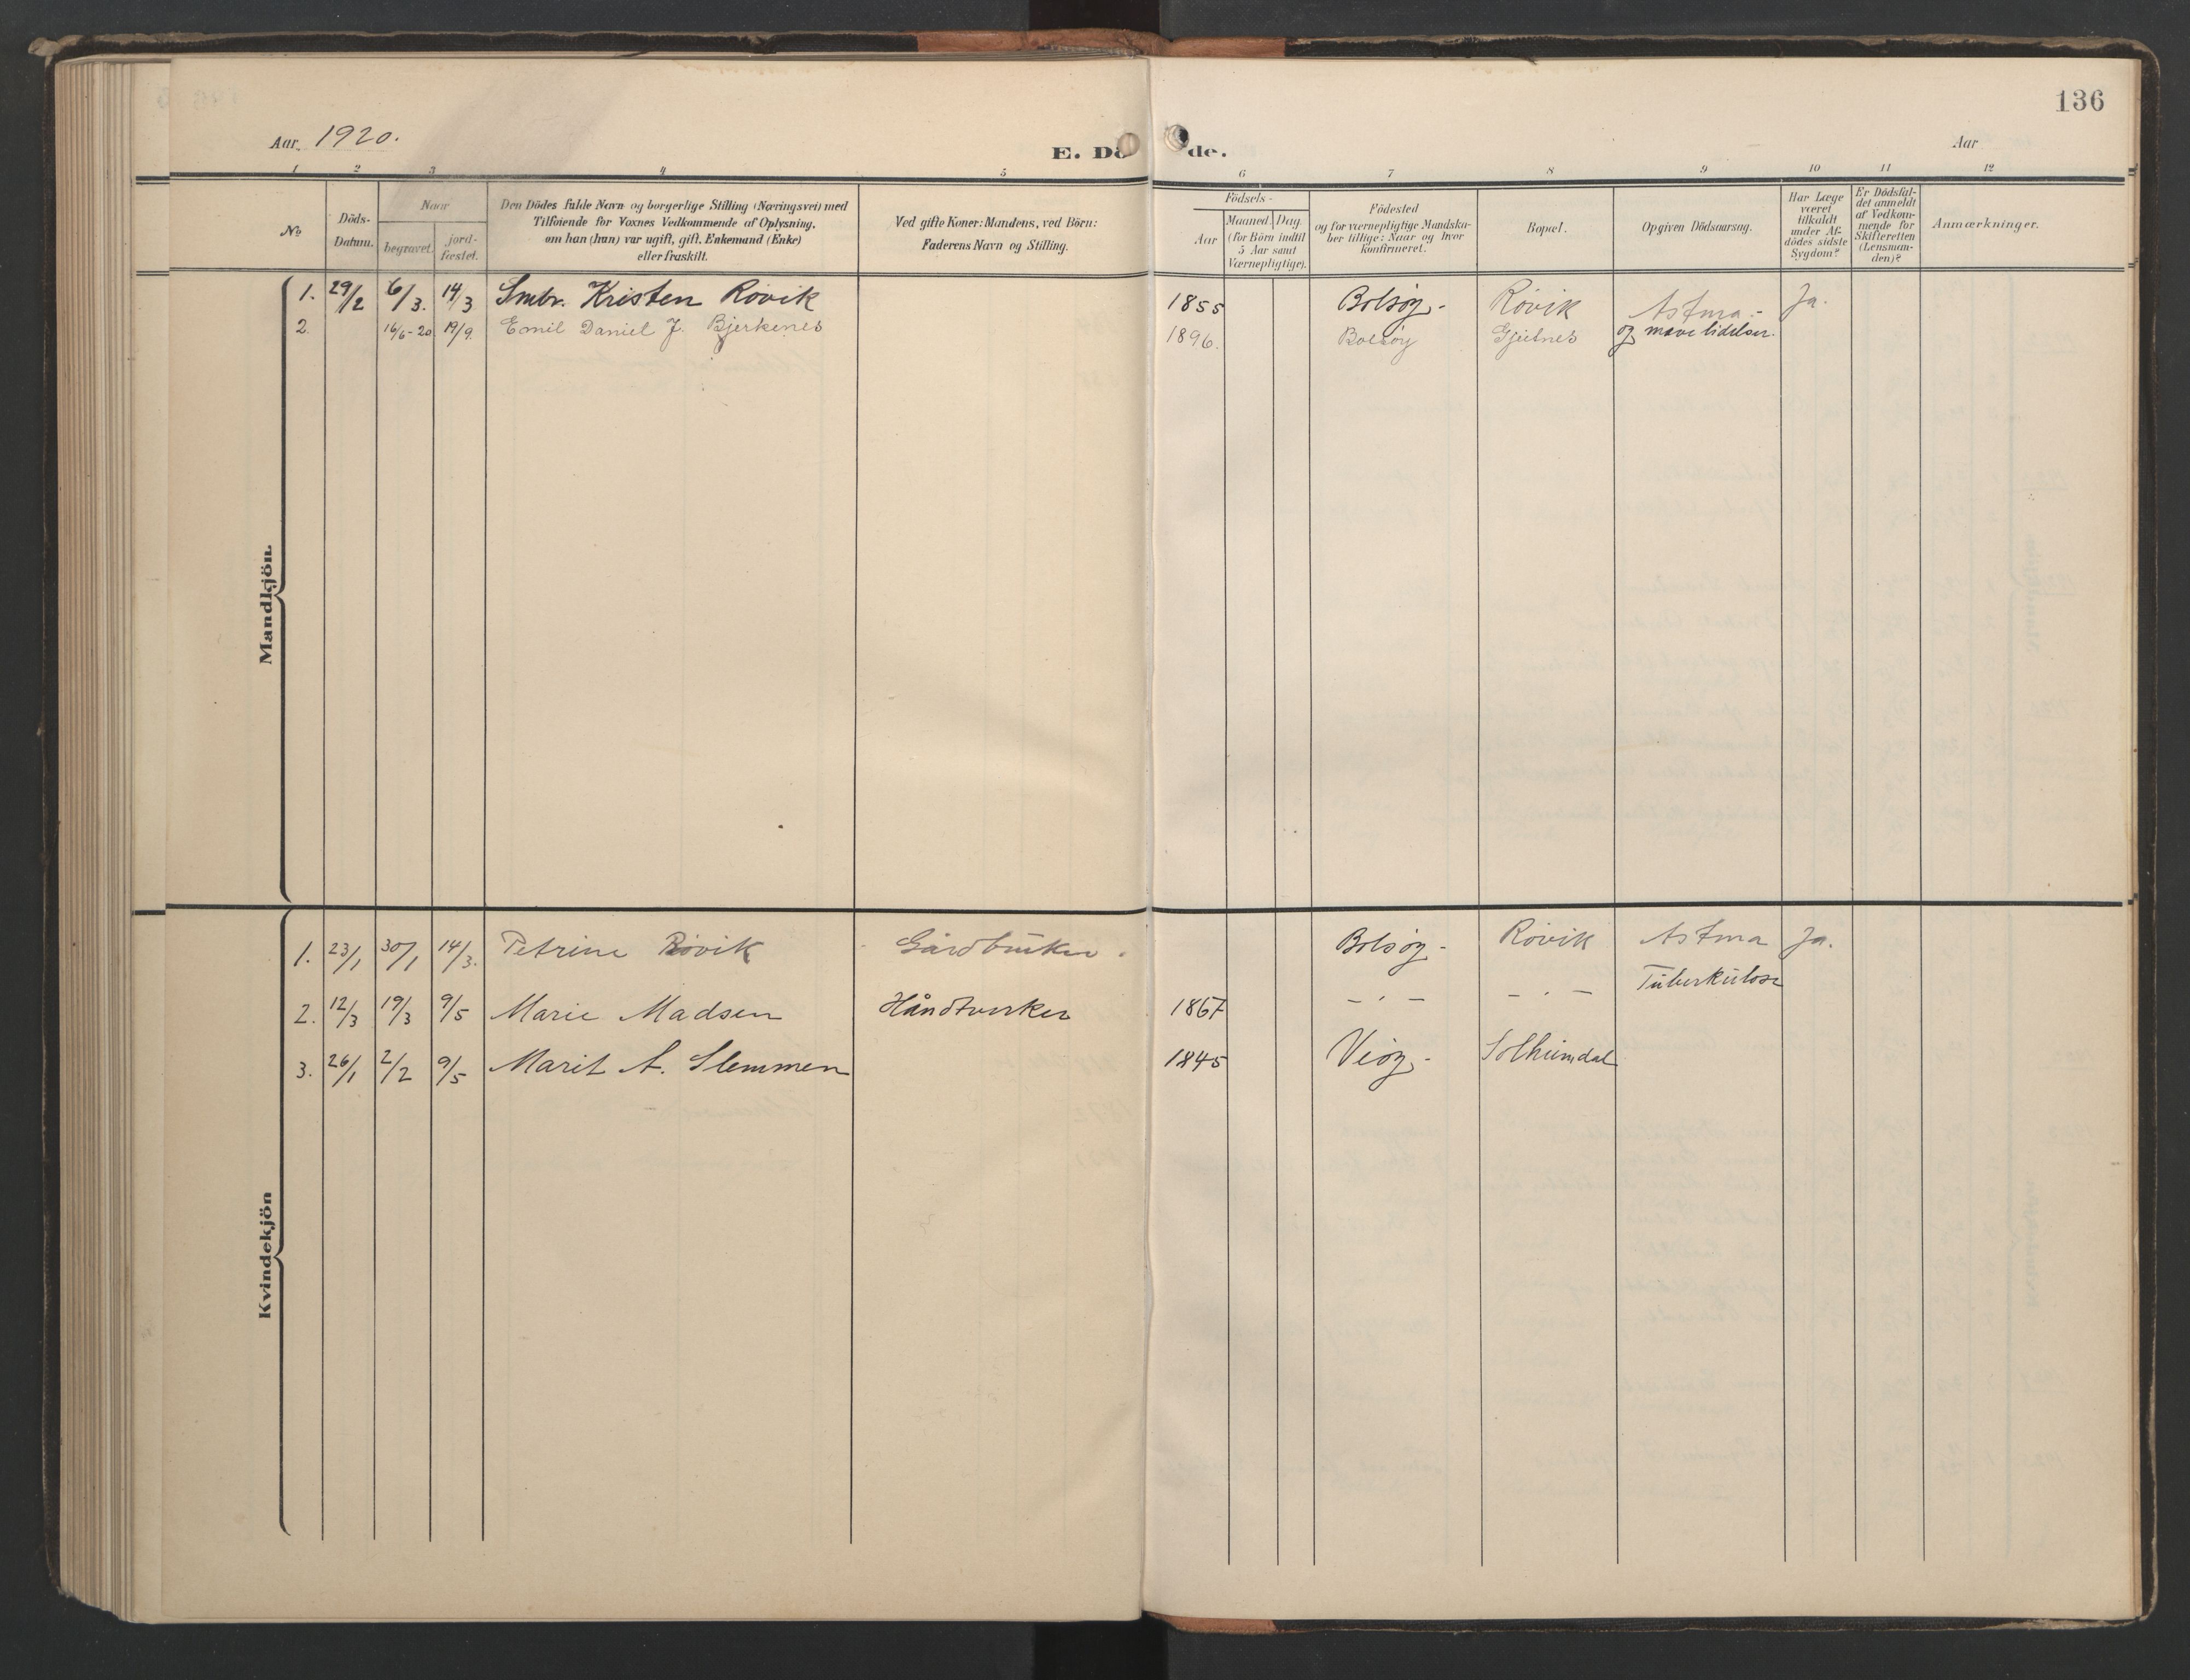 136
Aar 1920.
E. Dö de.
Aar
1 2 3 4 5 6 7 8 9 10 11 12
No
Döds-Datum.
Naar
begravet.
jord-fæstet.
Den Dödes fulde Navn og borgerlige Stilling (Næringsvei) med
Tilföiende for Voxnes Vedkommende af Oplysning,
om han (hun) var ugift, gift, Enkemand (Enke)
eller fraskilt.
Ved gifte Koner: Mandens, ved Börn:
Faderens Navn og Stilling.
Födsels-
Aar
Maaned. Dag.
(for Börn indtil
5 Aar samt
Værnepligtige).
Födested
og for værnepligtige Mandska-
ber tillige: Naar og hvor
konfirmeret.
Bopæl.
Opgiven Dödsaarsag.
Har Læge
været
tilkaldt
under Af-
dödes sidste
Sygdom?
Er Dödsfal-
det anmeldt
af Vedkom-
mende for
Skifteretten
(Lensman-
den)?
Anmærkninger.
Mandkjön.
1. 29/2 6/3. 14/3 Smbr. Kristen Rövik 1855 Bolsöy- Rövik Astma.- Ja.
2. 16/6-20 19/9. Emil Daniel J. Bjerkenes 1896. Bolsöy Gjelnes og mavelidelser.
Kvindekjön
1. 23/1 30/1 14/3. Petrine Rövik Gårdbruker. Bolsöy- Rövik Astma Ja.
2. 12/3 19/3 9/5 Marie Madsen Håndverker 1867 – . – – . – Tuberkulose
3. 26/1 2/2 9/5 Marit A. Slemmen 1845 Veöy- Solheimdal